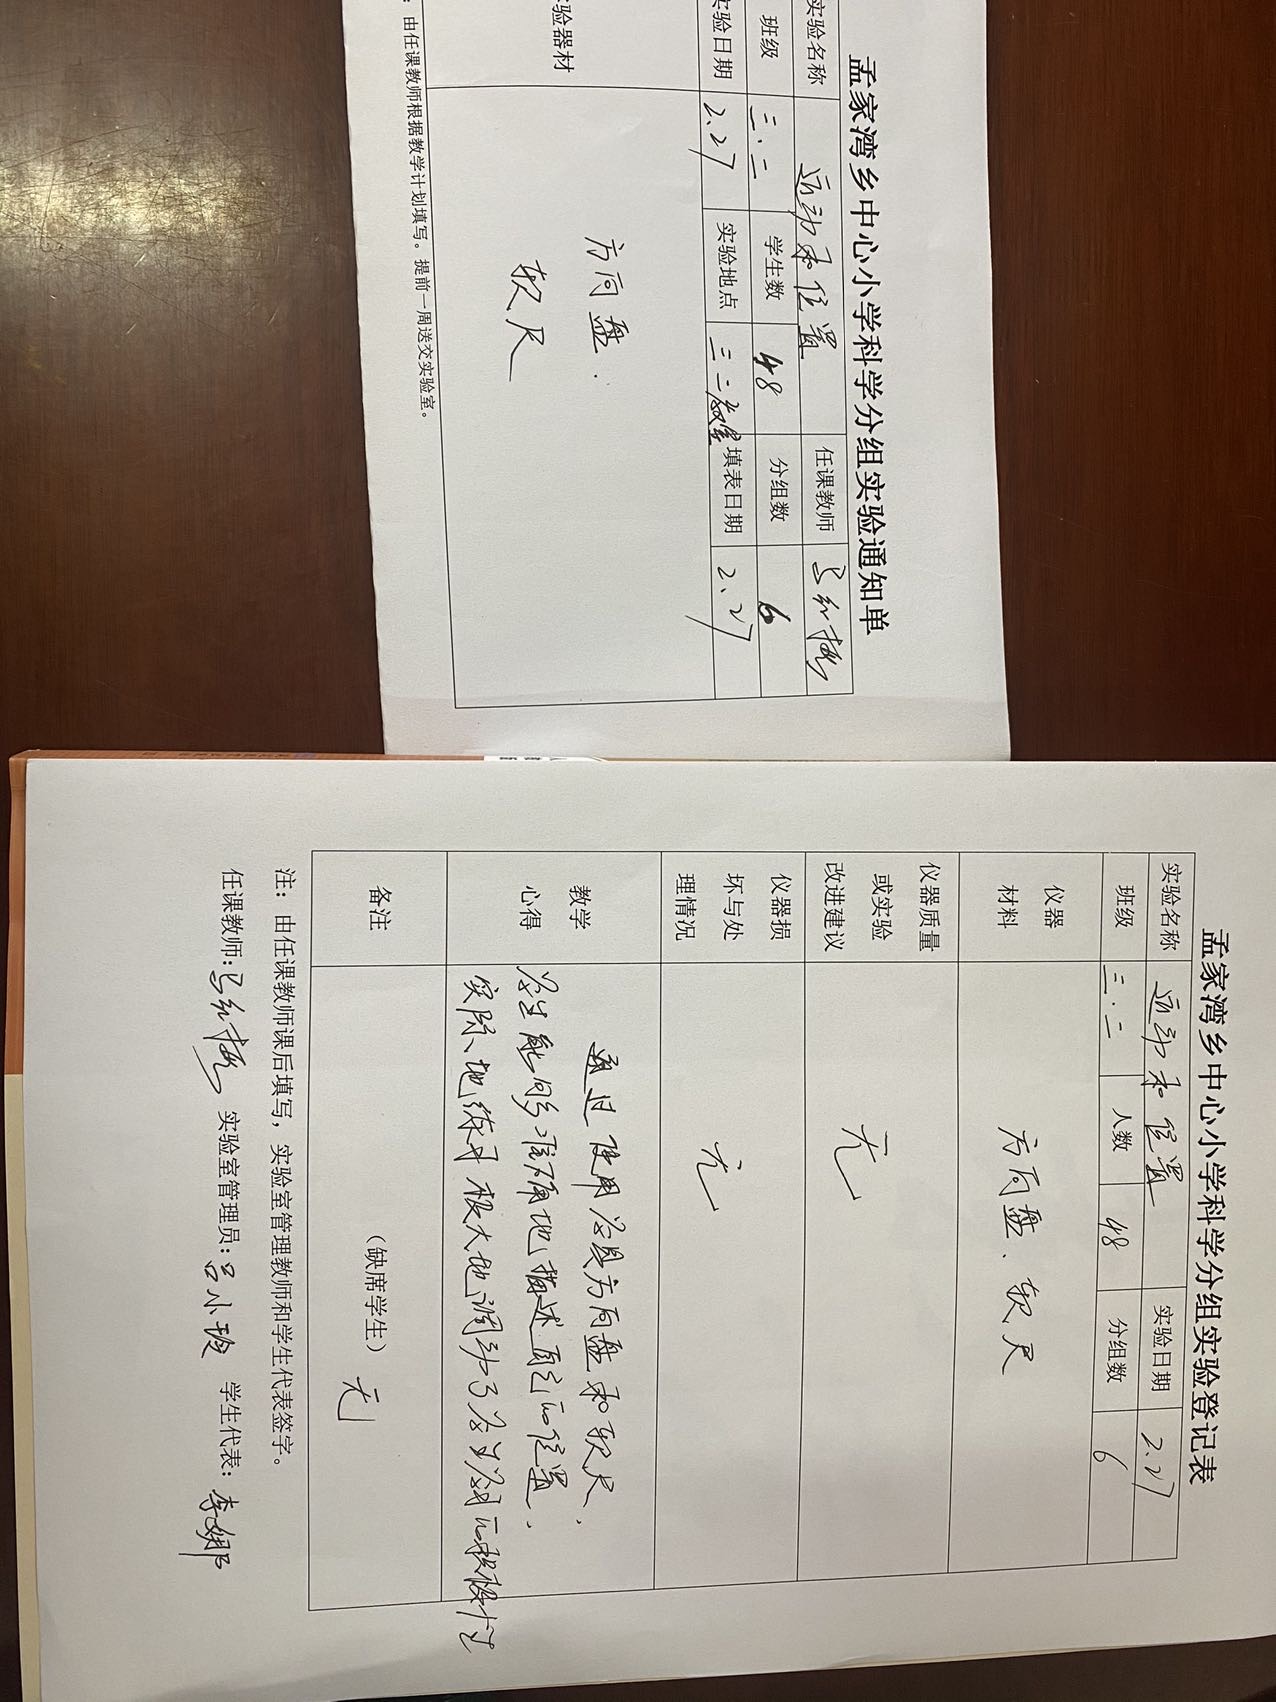 孟家湾乡中心小学科学分组实验通知单
实验名称 运动和位置 任课教师
班级 三.二 学生数 48 分组数 6
实验日期 2.27 实验地点 三二教室 填表日期 2.27
验器材 方向盘.
软尺
：由任课教师根据教学计划填写。提前一周送交实验室。
孟家湾乡中心小学科学分组实验登记表
实验名称 运动和位置 实验日期 2.27
班级 三.二 人数 48 分组数 6
仪器
材料
方向盘、软尺
仪器质量
或实验
改进建议
无
仪器损
坏与处
理情况
无
教学
心得
通过使用学具方向盘和软尺，
学生能够准确地描述自己的位置，
实际地练习极大地调动了学生学习的积极性
备注
（缺席学生） 无
注：由任课教师课后填写，实验室管理教师和学生代表签字。
任课教师： 实验室管理员：吕小玻 学生代表：李娜